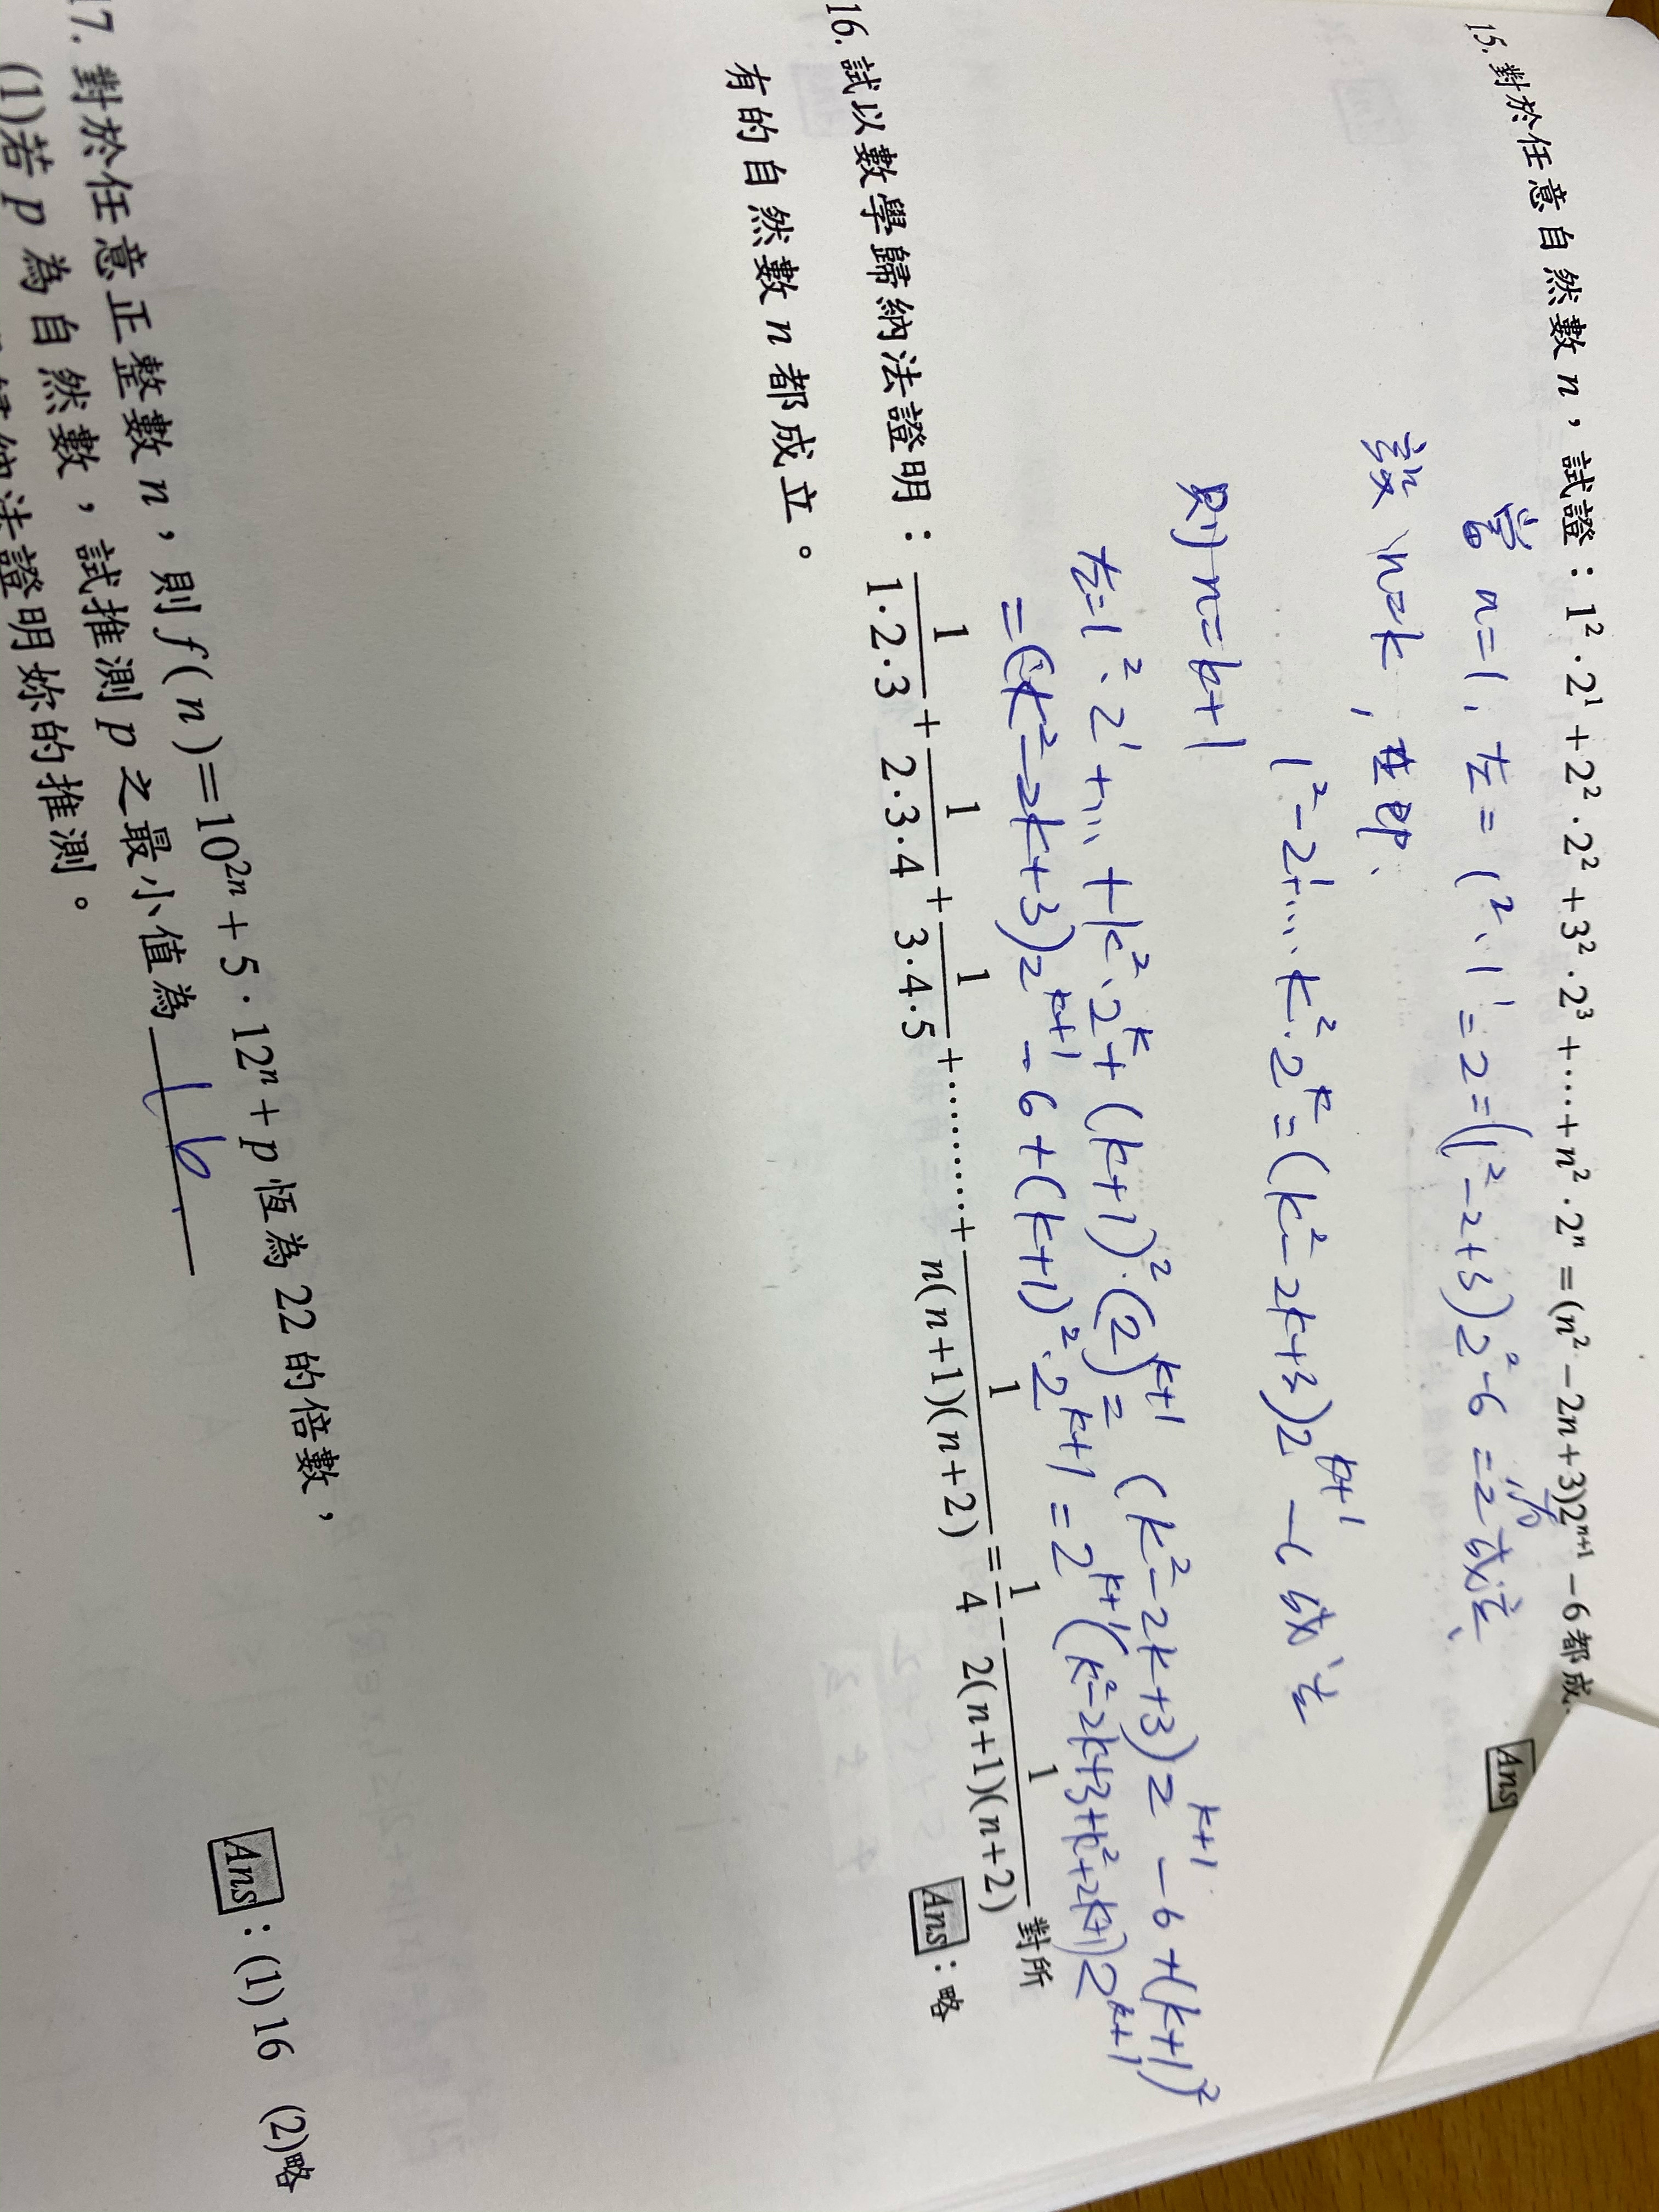 15. 對於任意自然數 n，試證：1²·2¹+2²·2²+3²·2³+⋯⋯+n²·2ⁿ=(n²−2n+3)2ⁿ⁺¹−6 都成
Ans
當 n=1, 左=1²·1¹=2=(1²−2+3)2²−6=2 成立、
設 n=k, 即、
1²−2¹+... k²·2ᵏ=(k²−2k+3)2ᵏ⁺¹−6 成立
則 n=k+1
左=1²·2¹+...+k²·2ᵏ+(k+1)²·(2)ᵏ⁺¹=(k²−2k+3)2ᵏ⁺¹−6+(k+1)²
=(k²−2k+3)2ᵏ⁺¹−6+(k+1)²·2ᵏ⁺¹=2ᵏ⁺¹(k²−2k+3+k²+2k+1)2ᵏ⁺¹
16. 試以數學歸納法證明：1/(1·2·3)+1/(2·3·4)+1/(3·4·5)+⋯⋯⋯+1/(n(n+1)(n+2))=1/4−1/(2(n+1)(n+2)) 對所
有的自然數 n 都成立。
Ans：略
17. 對於任意正整數 n，則 f(n)=10²ⁿ+5·12ⁿ+p 恆為 22 的倍數，
(1)若 p 為自然數，試推測 p 之最小值為 16
法證明妳的推測。
Ans：(1)16 (2)略